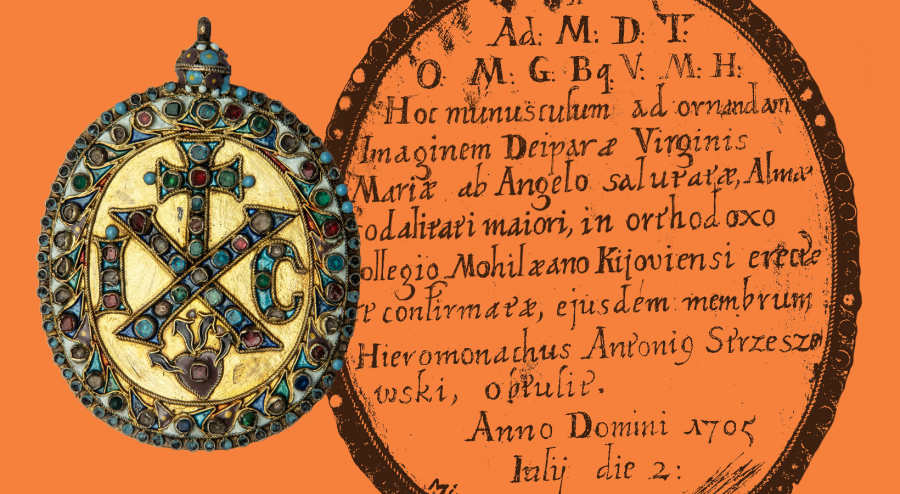 I C
Ad: M: D: T:
O M: G: Bq V: M: H:
Hoc munusculum ad ornandam
Imaginem Deiparæ Virginis
Mariæ ab Angelo salutatæ, Almæ
odalitati maiori, in orthodoxo
ollegio Mohilæano Kijoviensi erectæ
et confirmatæ, ejusdem membrum
Hieromonachus Antoni9 Strzeszo
wski, obtulit.
Anno Domini 1705
Iulij die 2: